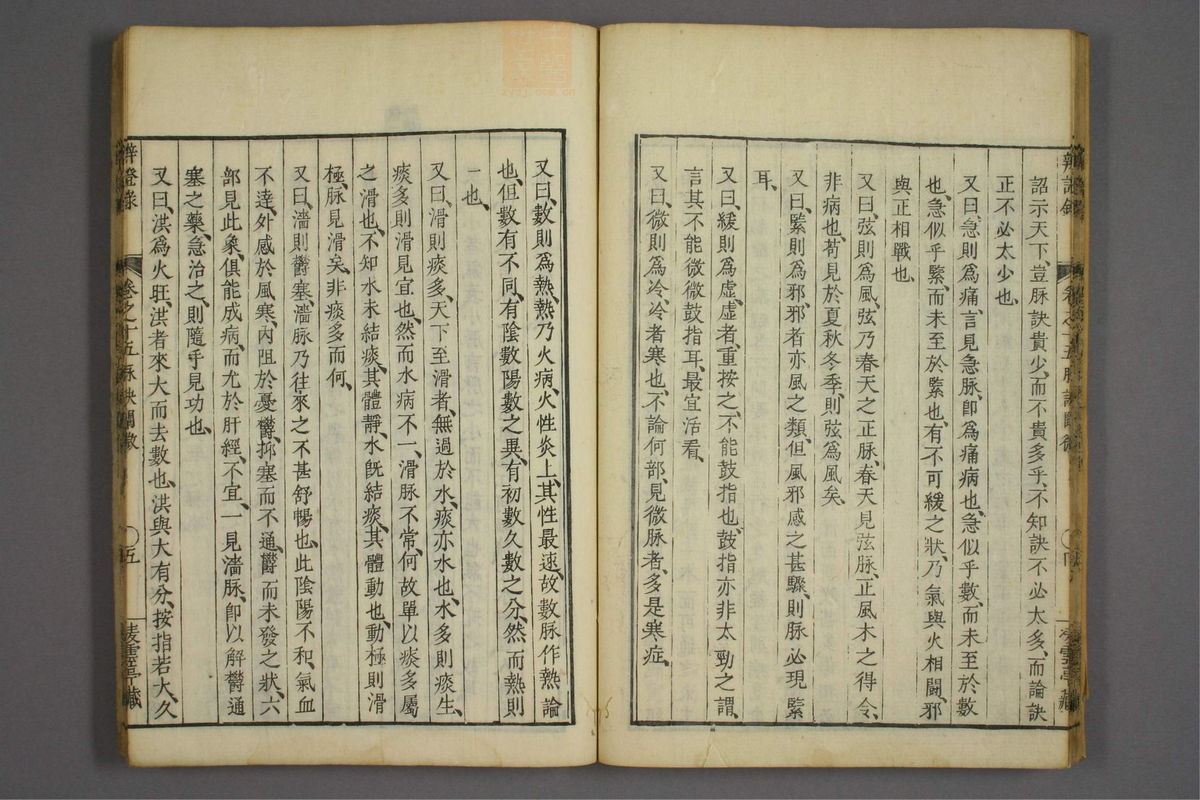 詔示天下、豈脉訣貴少、而不貴多乎、不知訣不必太多、而論訣
正不必太少也、
又曰、急則爲痛、言見急脉、卽爲痛病也、急似乎數、而未至於數
也、急似乎緊、而未至於緊也、有不可緩之狀、乃氣與火相鬪、邪
與正相戰也、
又曰弦則爲風、弦乃春天之正脉、春天見弦脉、正風木之得令、
非病也、苟見於夏秋冬季、則弦爲風矣、
又曰、緊則爲邪、邪者亦風之類、但風邪感之甚驟、則脉必現緊
耳、
又曰、緩則爲虛、虛者、重按之、不能鼓指也、鼓指亦非太勁之謂、
言其不能微微鼓指耳、最宜活看、
又曰、微則爲冷、冷者寒也、不論何部、見微脉者、多是寒症、
又曰、數則爲熱、熱乃火病、火性炎上、其性最速、故數脉作熱論
也、但數有不同、有陰數陽數之異、有初數久數之分、然而熱則
一也、
又曰、滑則痰多、天下至滑者、無過於水、痰亦水也、水多則痰生、
痰多則滑見宜也、然而水病不一、滑脉不常、何故單以痰多屬
之滑也、不知水未結痰、其體靜、水既結痰、其體動也、動極則滑
極、脉見滑矣、非痰多而何、
又曰、濇則鬱塞、濇脉乃往來之不甚舒暢也、此陰陽不和、氣血
不達、外感於風寒、內阻於憂鬱、抑塞而不通、鬱而未發之狀、六
部見此象、俱能成病、而尤於肝經、不宜、一見濇脉、卽以解鬱通
塞之藥、急治之、則隨手見功也、
又曰、洪爲火旺、洪者來大而去數也、洪與大有分、按指若大、久
辨證錄
卷之十五脉訣闡微
五